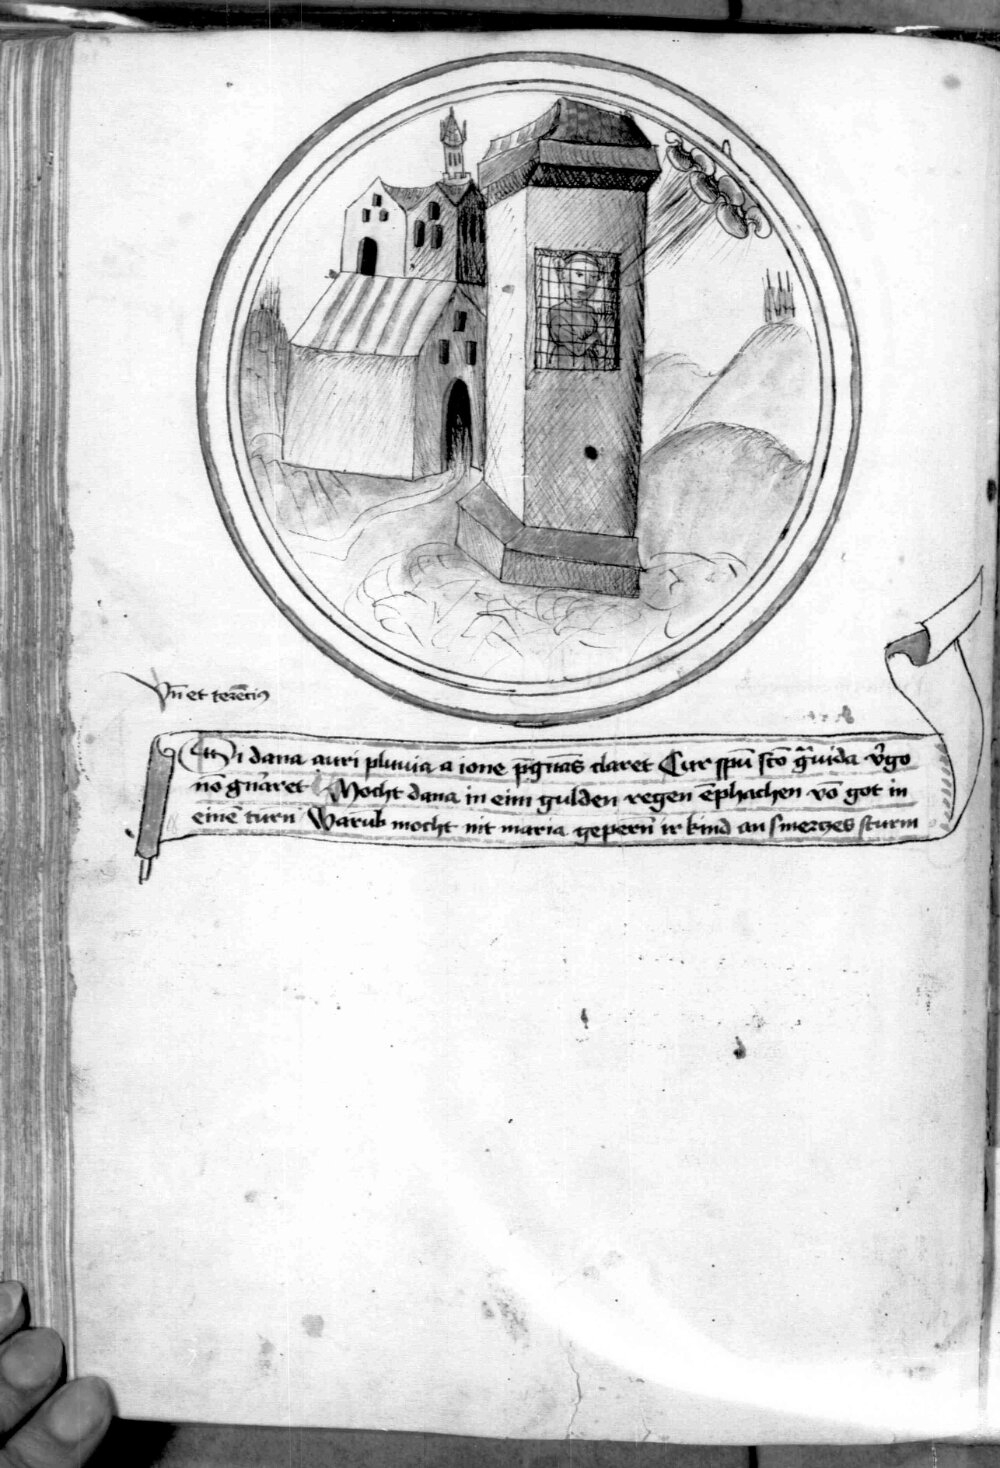 Vñ et terēciꝰ
Si dana auri pluuia a ioue p̄gnās claret Cur spū scō g̃uida v̓go
nō gn̓aret Mocht dana in eim gulden regen ēphachen vō got in
einē turn Warūb mocht nit maria gepern̄ ir kind an smerczes sturm